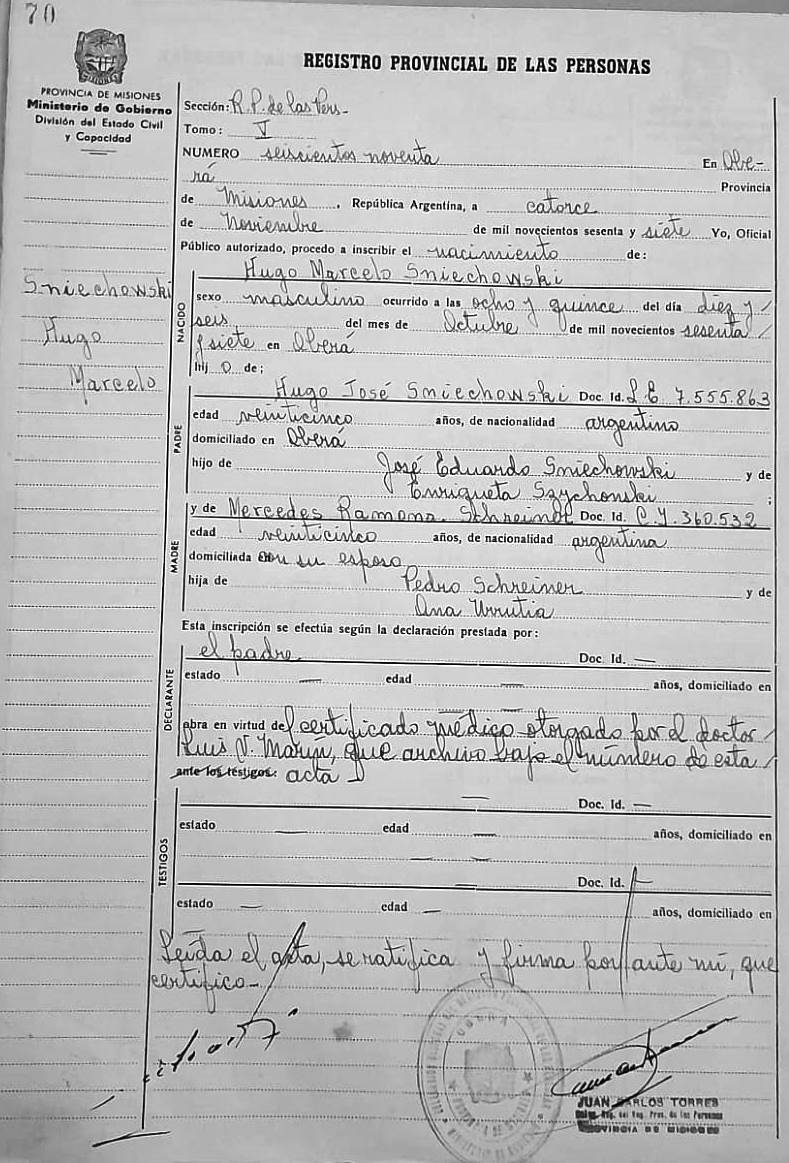 70
PROVINCIA DE MISIONES
Ministerio de Gobierno
División del Estado Civil
y Capacidad
REGISTRO PROVINCIAL DE LAS PERSONAS
Sección: R.P. de las Pers-
Tomo: V
NUMERO seiscientos noventa En Obe-
rá Provincia
de Misiones, República Argentina, a catorce
de Noviembre de mil novecientos sesenta y siete Yo, Oficial
Público autorizado, procedo a inscribir el nacimiento de:
Sniechowski
Hugo
Marcelo
NACIDO
Hugo Marcelo Sniechowski
sexo masculino ocurrido a las ocho y quince del día diez y
seis del mes de Octubre de mil novecientos sesenta
y siete en Oberá
hij o de;
PADRE
Hugo José Sniechowski Doc. Id. L E 7.555.863
edad veinticinco años, de nacionalidad argentino
domiciliado en Oberá
hijo de José Eduardo Sniechowski y de
Enriqueta Szychonski;
MADRE
y de Mercedes Ramona Schreiner Doc. Id. C.I. 360.532
edad veinticinco años, de nacionalidad argentina
domiciliada con su esposo
hija de Pedro Schreiner y de
Ana Urrutia
Esta inscripción se efectúa según la declaración prestada por:
DECLARANTE
el padre Doc. Id. —
estado — edad — años, domiciliado en
obra en virtud del certificado médico otorgado por el doctor
Luis V. Marun, que archivo bajo el número de esta
ante los testigos: acta
TESTIGOS
— Doc. Id. —
estado — edad — años, domiciliado en
— Doc. Id.
estado — edad — años, domiciliado en
Leída el acta, se ratifica y firma por ante mí, que
certifico-
OBERA
JUAN CARLOS TORRES
Reg. del Reg. Prov. de las Personas
PROVINCIA DE MISIONES